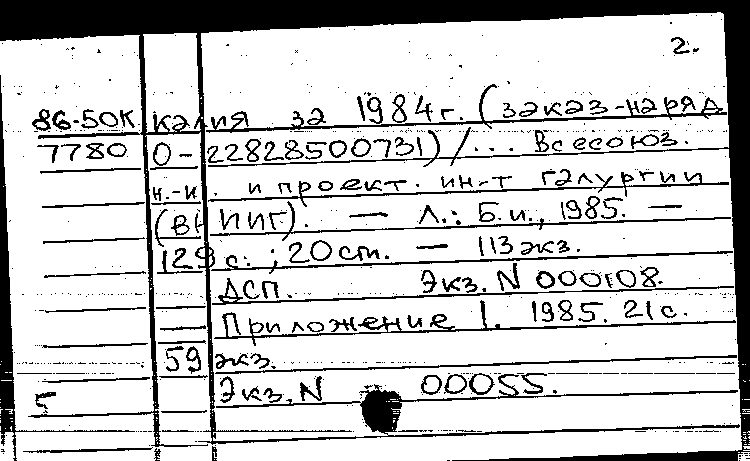 2.
86-50К калия за 1984г. (заказ-наряд
7780 0-22828500731) /... Всесоюз.
н.-и. и проект. ин-т галургии
(ВНИИГ). — Л.: Б.и., 1985. —
129с.; 20см. — 113экз.
ДСП. Экз. N 000108.
Приложение 1. 1985. 21с.
59 экз.
5 Экз. N 00055.